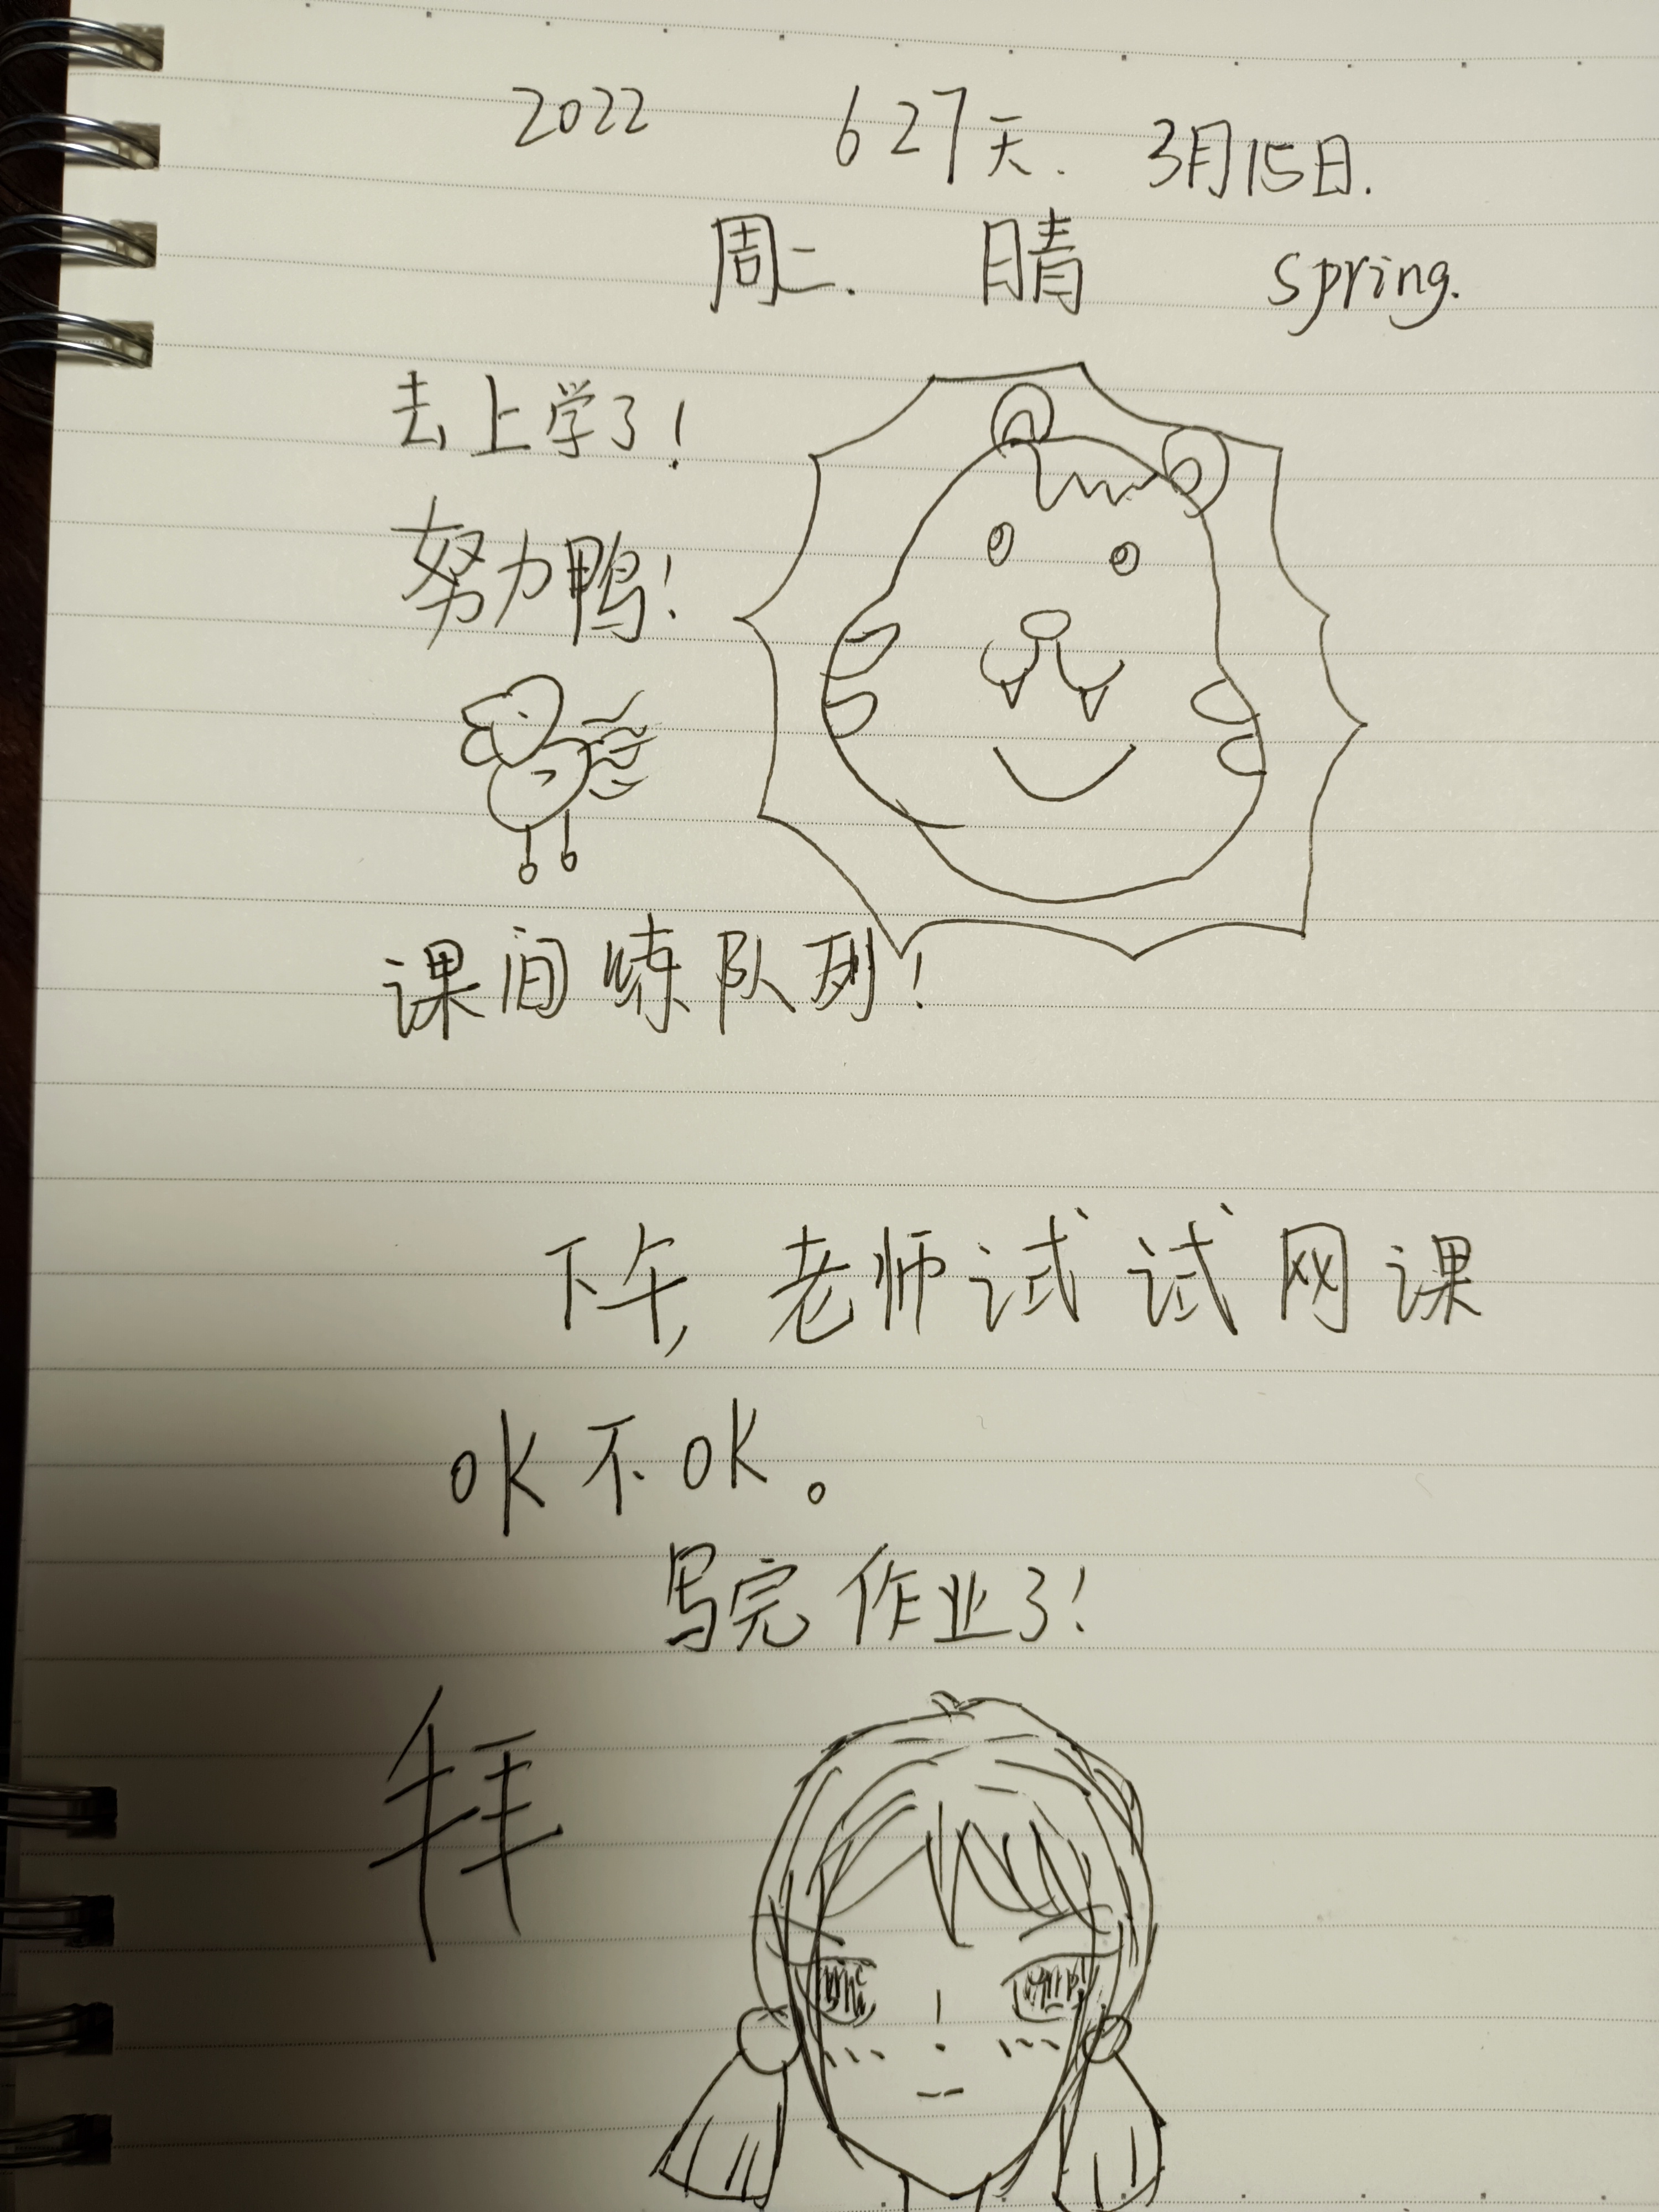 2022 627天. 3月15日.
周二. 晴 spring.
去上学了!
努力鸭!
课间练队列!
下午, 老师试试网课
OK不OK。
写完作业了!
拜